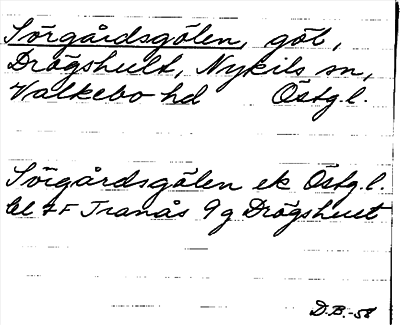 Sörgårdsgölen, göl,
Drögshult, Nykils sn,
Valkebo hd Östg.l.
Sörgårdsgölen ek Östg.l.
bl 7F Tranås 9g Drögshult
D.B.-58